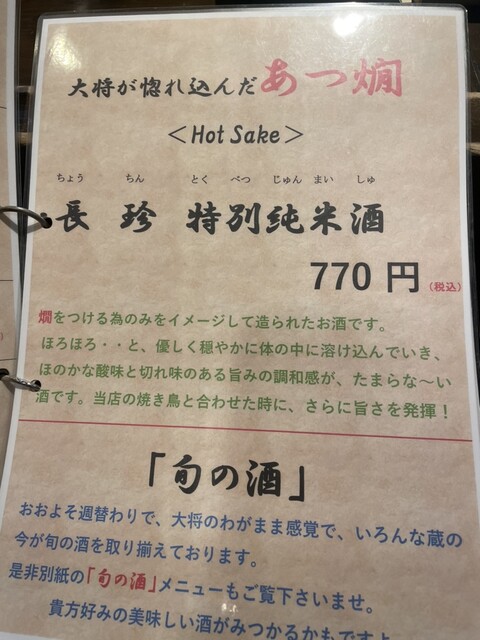 大将が惚れ込んだあつ燗
＜Hot Sake＞
ちょう ちん とく べつ じゅん まい しゅ
長 珍 特別純米酒
770 円（税込）
燗をつける為のみをイメージして造られたお酒です。
ほろほろ・・と、優しく穏やかに体の中に溶け込んでいき、
ほのかな酸味と切れ味のある旨みの調和感が、たまらな～い
酒です。当店の焼き鳥と合わせた時に、さらに旨さを発揮！
「旬の酒」
おおよそ週替わりで、大将のわがまま感覚で、いろんな蔵の
今が旬の酒を取り揃えております。
是非別紙の「旬の酒」メニューもご覧下さいませ。
貴方好みの美味しい酒がみつかるかもですよ